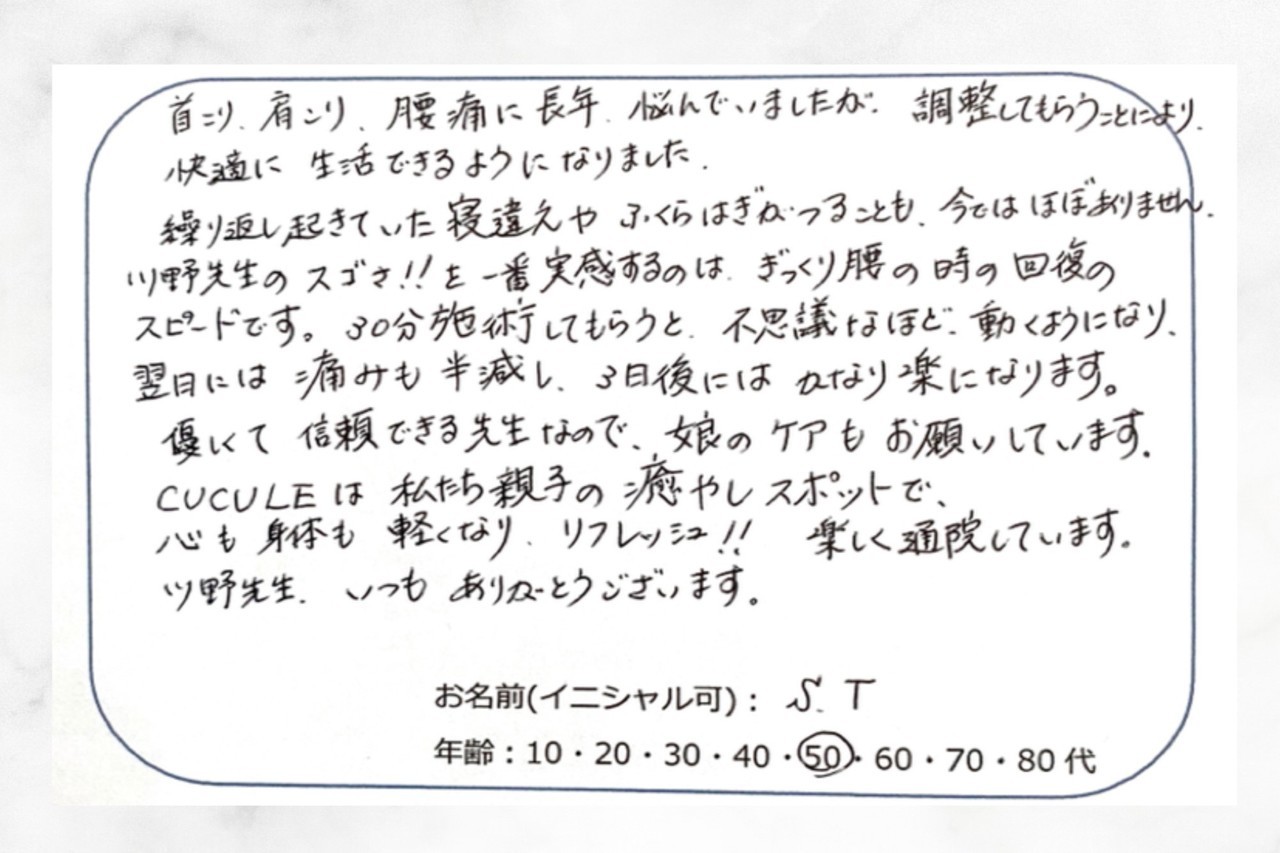 首こり、肩こり、腰痛に長年、悩んでいましたが、調整してもらうことにより、
快適に生活できるようになりました。
繰り返し起きていた寝違えやふくらはぎがつることも、今ではほぼありません。
ツ野先生のスゴさ!!を一番実感するのは、ぎっくり腰の時の回復の
スピードです。30分施術してもらうと、不思議なほど、動くようになり、
翌日には痛みも半減し、3日後にはかなり楽になります。
優しくて信頼できる先生なので、娘のケアもお願いしています。
CUCULEは私たち親子の癒やしスポットで、
心も身体も軽くなり、リフレッシュ!! 楽しく通院しています。
ツ野先生、いつもありがとうございます。
お名前(イニシャル可)： S.T
年齢：10・20・30・40・50・60・70・80代